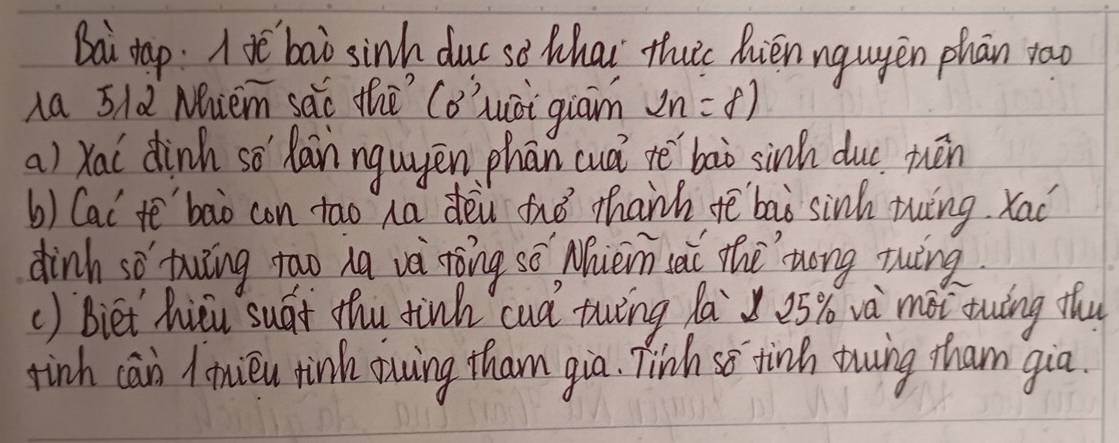 Bài tập: 1 tế bào sinh dục sơ khai thực hiện nguyên phân tạo
ra 512 Nhiễm sắc thể (ở ruồi giấm 2n = 8)
a) Xác định số lần nguyên phân của tế bào sinh dục trên
b) Các tế bào con tạo ra đều trở thành tế bài sinh trứng. Xác
định số trứng tạo ra và tổng số Nhiễm sắc thể trong trứng.
c) Biết hiệu suất thụ tinh của trứng là 25% và mỗi trứng thụ
tinh cần 1 triệu tinh trùng tham gia. Tính số tinh trùng tham gia.